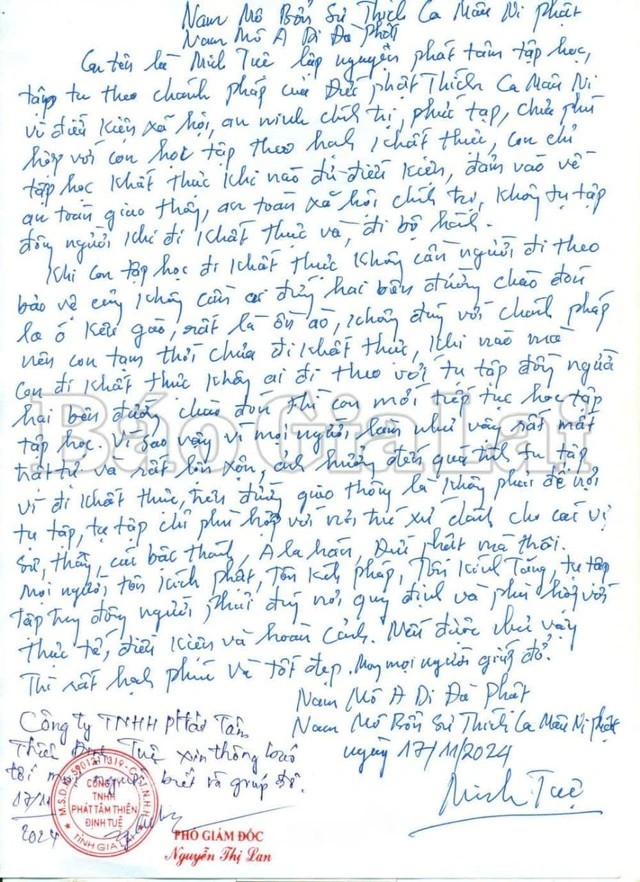 Nam Mô Bổn Sư Thích Ca Mâu Ni Phật
Nam Mô A Di Đà Phật
Con tên là Minh Tuệ lập nguyện phát tâm tập học,
tập tu theo chánh pháp của Đức phật Thích Ca Mâu Ni
vì điều kiện xã hội, an ninh chính trị, phức tạp, chưa phù
hợp với con học tập theo hạnh khất thực, con chỉ
tập học khất thực khi nào đủ điều kiện, đảm bảo về
an toàn giao thông, an toàn xã hội chính trị, không tụ tập
đông người khi đi khất thực và, đi bộ hành.
Khi con tập học đi khất thực không cần người đi theo
bảo vệ cũng không cần ai đứng hai bên đường chào đón
la ó kêu gào, rất là ồn ào, không đúng với chánh pháp
nên con tạm thời chưa đi khất thực, khi nào mà
con đi khất thực không ai đi theo với tụ tập đông người
hai bên đường chào đón thì con mới tiếp tục học tập
tập học. Vì sao vậy vì mọi người làm như vậy rất mất
trật tự và rất lộn xộn, ảnh hưởng đến quá trình tu tập
vì đi khất thực, trên đường giao thông là không phải để nơi
tụ tập, tụ tập chỉ phù hợp với nơi trú xứ dành cho các vị
sư, thầy, các bậc thánh, A la hán, Đức phật mà thôi.
Mọi người tôn kính phật, Tôn kính pháp, Tôn kính Tăng, tụ tập
tập trung đông người phải đúng nơi quy định và phù hợp với
thực tế, điều kiện và hoàn cảnh. Nếu được như vậy
Thì rất hạnh phúc và tốt đẹp. Mong mọi người giúp đỡ.
Nam Mô A Di Đà Phật
Nam Mô Bổn Sư Thích Ca Mâu Ni phật
ngày 17/11/2024
Minh Tuệ
Công ty TNHH Phát Tâm
Thiền Định Tuệ xin thông báo
tới mọi người biết và giúp đỡ.
17/11
2024
CÔNG TY
TNHH
PHÁT TÂM THIỀN
ĐỊNH TUỆ
TỈNH GIA LAI
PHÓ GIÁM ĐỐC
Nguyễn Thị Lan
Báo Gia Lai